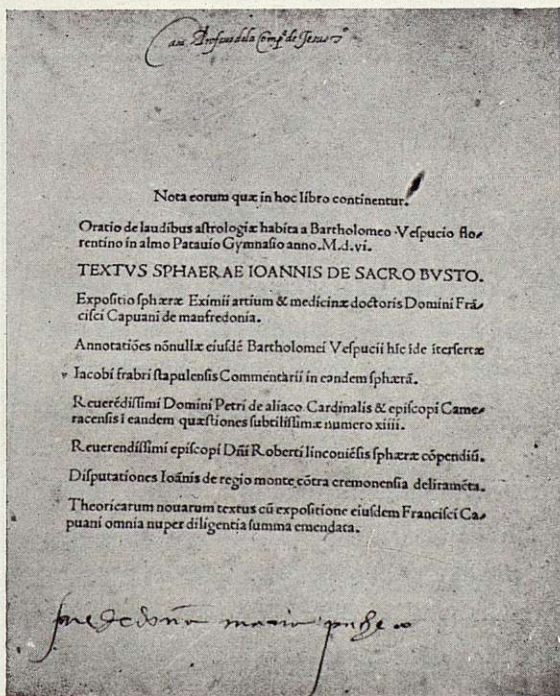 Professa dela Comp.ª de Jesus
Nota eorum quæ in hoc libro continentur.
Oratio de laudibus astrologiæ habita a Bartholomeo Vespucio flo-
rentino in almo Patauio Gymnasio anno.M.d.vi.
TEXTVS SPHAERAE IOANNIS DE SACRO BVSTO.
Expositio sphæræ Eximii artium & medicinæ doctoris Domini Frã-
cisci Capuani de manfredonia.
Annotatiões nõnullæ eiusdẽ Bartholomei Vespucii hic ĩde ĩtersertæ
Iacobi fabri stapulensis Commentarii in eandem sphærã.
Reuerẽdissimi Domini Petri de aliaco Cardinalis & episcopi Came-
racensis ĩ eandem quæstiones subtilissimæ numero xiiii.
Reuerendissimi episcopi Dñi Roberti linconiẽsis sphæræ cõpendiũ.
Disputationes Ioãnis de regio monte cõtra cremonensia deliramẽta.
Theoricarum nouarum textus cũ expositione eiusdem Francisci Ca-
puani omnia nuper diligentia summa emendata.
fue de doña maria pacheco